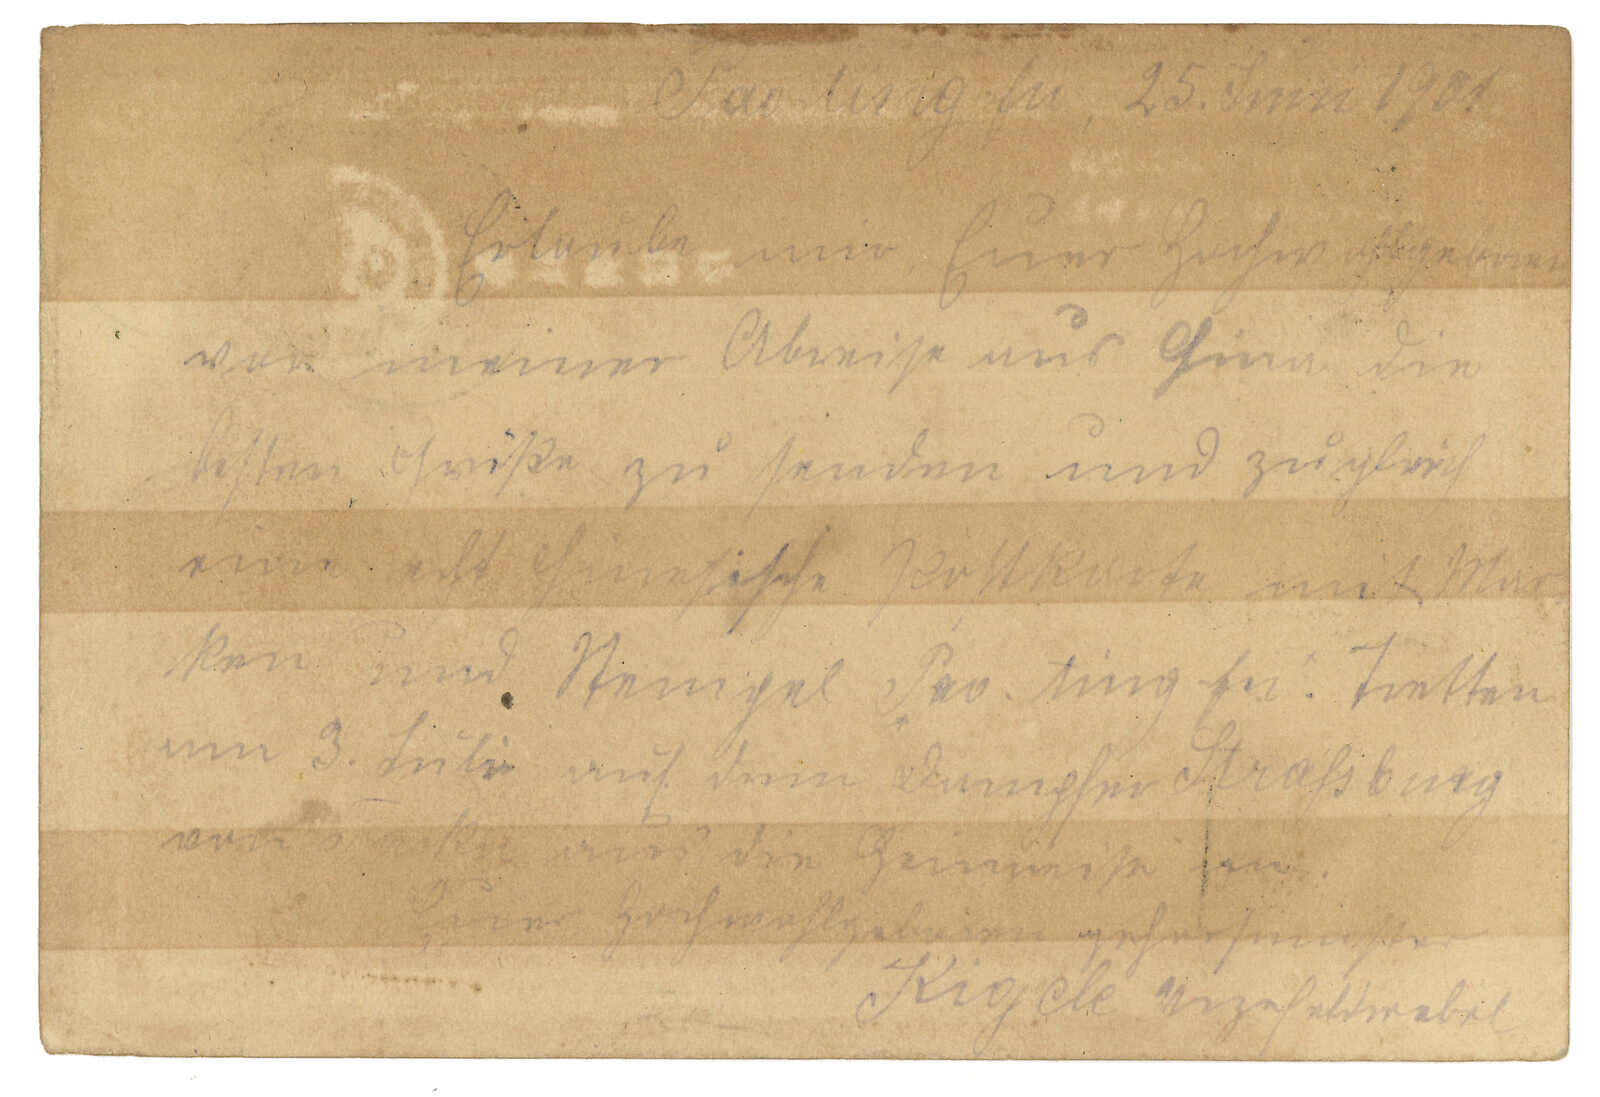 Pao ting fu, 25. Juni 1901
Erlaube mir Euer Hochwohlgeboren
vor meiner Abreise aus China die
besten Grüße zu senden und zugleich
eine echt chinesische Postkarte mit Mar-
ken und Stempel Pao-ting-fu. Tretten
am 3. Juli auf dem Dampfer Straßburg
von Taku aus die Heimreise an.
Euer Hochwohlgeboren gehorsamster
Vizefeldwebel